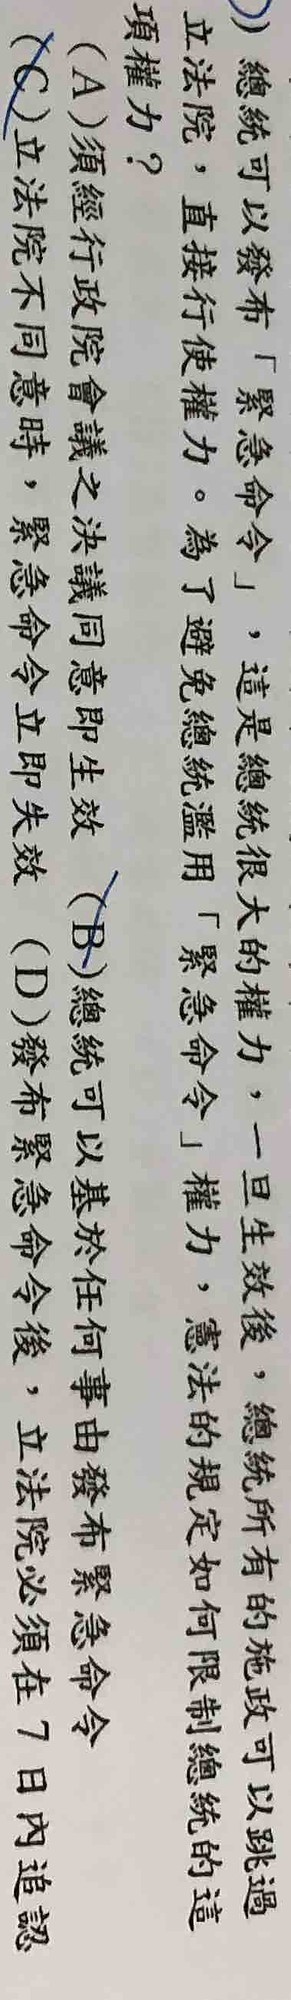 ) 總統可以發布「緊急命令」，這是總統很大的權力，一旦生效後，總統所有的施政可以跳過
立法院，直接行使權力。為了避免總統濫用「緊急命令」權力，憲法的規定如何限制總統的這
項權力？
(A)須經行政院會議之決議同意即生效 (B)總統可以基於任何事由發布緊急命令
(C)立法院不同意時，緊急命令立即失效 (D)發布緊急命令後，立法院必須在7日內追認